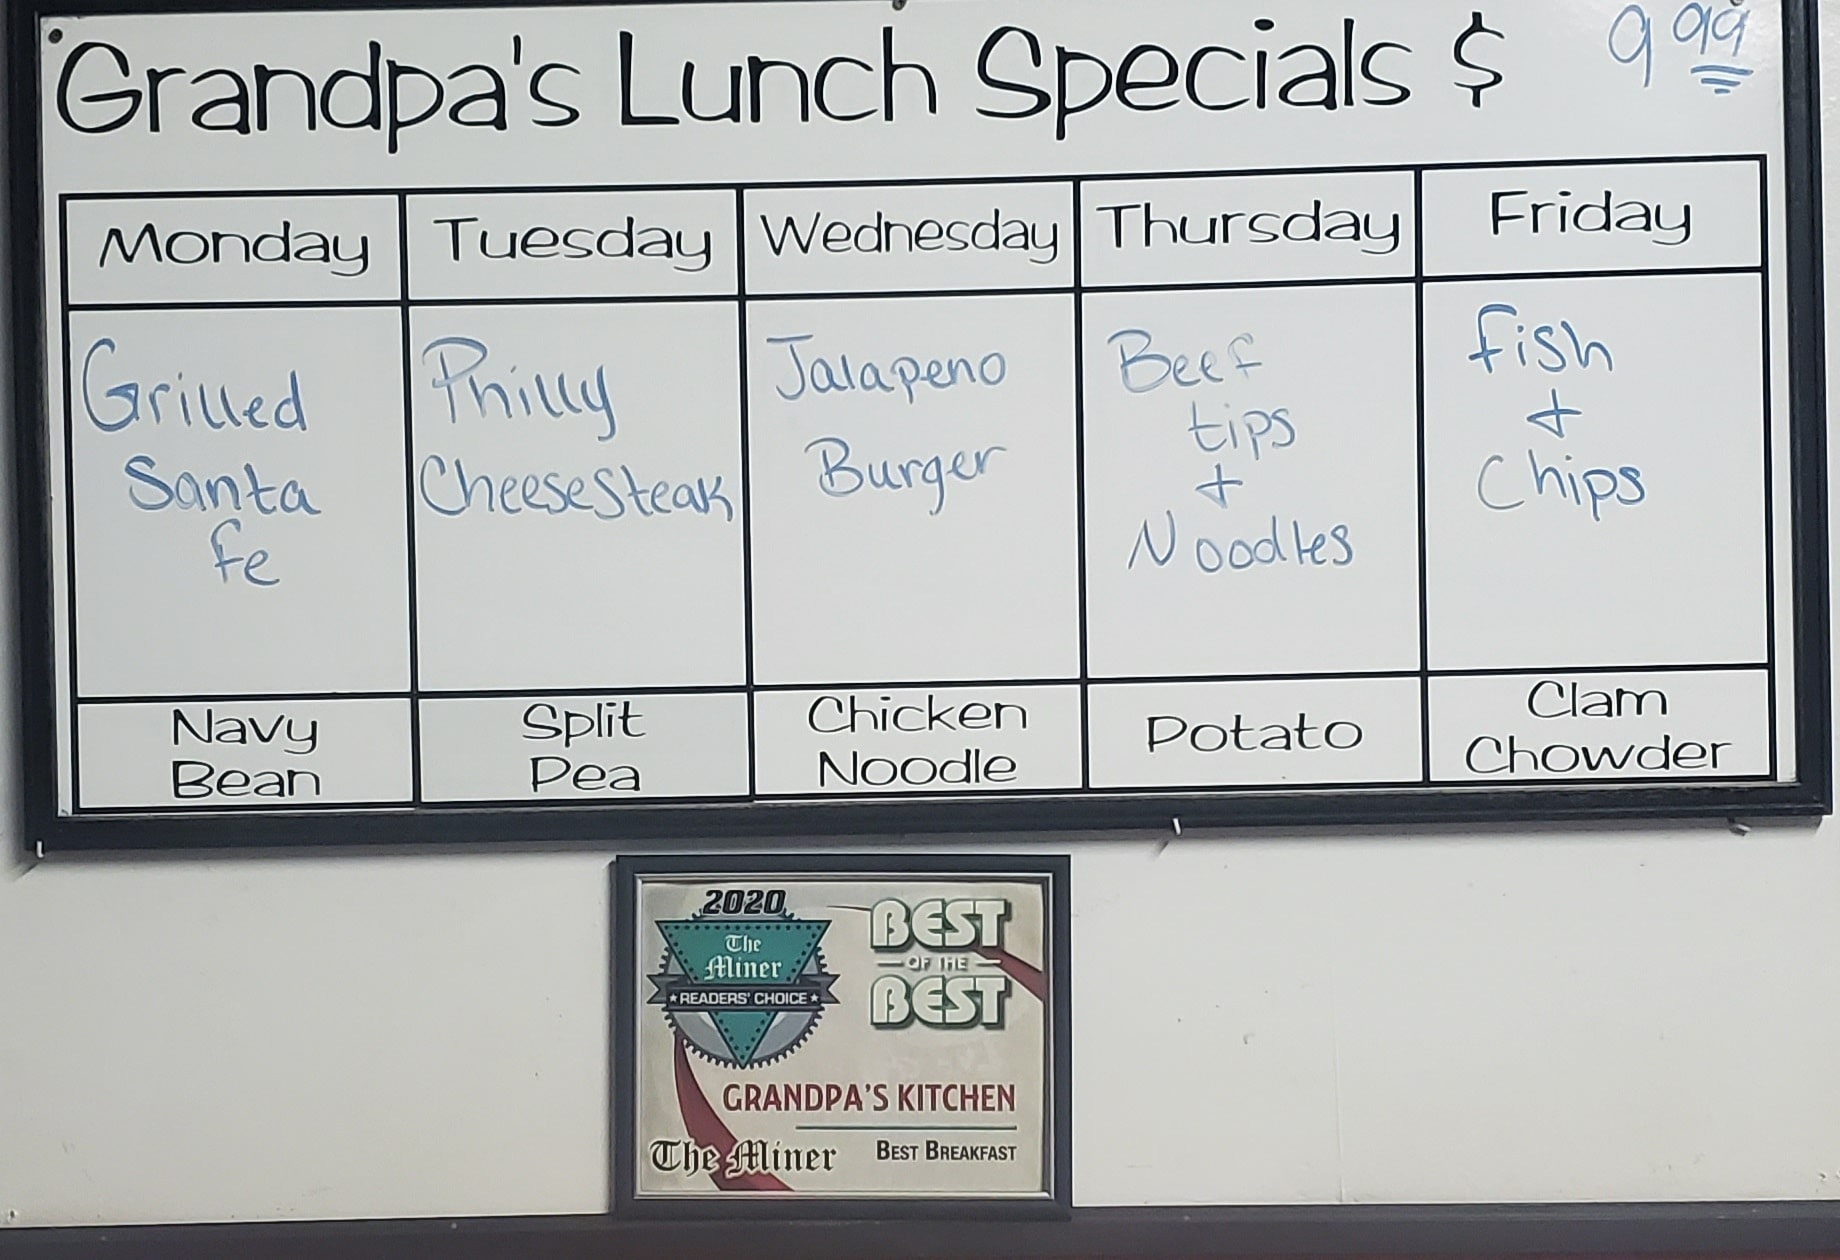 Grandpa's Lunch Specials $ 9 99
Monday Tuesday Wednesday Thursday Friday
Grilled
Santa
fe
Philly
CheeseSteak
Jalapeno
Burger
Beef
tips
+
Noodles
fish
+
Chips
Navy
Bean
Split
Pea
Chicken
Noodle
Potato
Clam
Chowder
2020
The
Miner
READERS' CHOICE
BEST
OF THE
BEST
GRANDPA'S KITCHEN
The Miner
BEST BREAKFAST